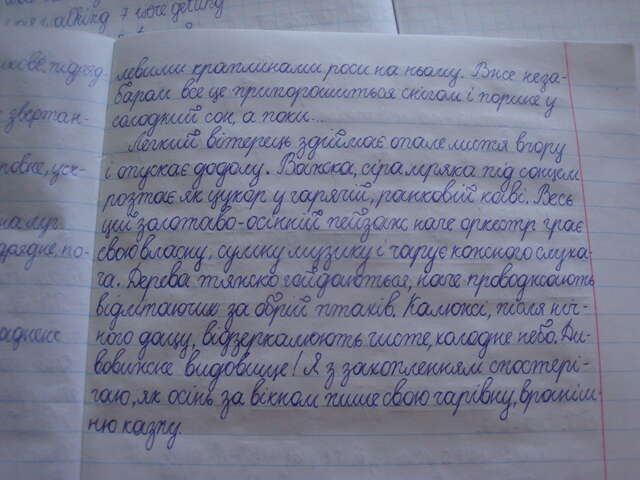 walking 7 were getting
левими краплинами роси на ньому. Вже неза-
баром все це припорошиться снігом і порине у
солодкий сон, а поки...
Легкий вітерець здіймає опале листя вгору
і опускає додолу. Важка, сіра мряка під сонцем
розтає як цукор у гарячій, ранковій каві. Весь
цей золотаво-осінній пейзаж наче оркестр грає
свою власну, сумну музику і чарує кожного слуха-
ча. Дерева тяжко гойдаються, наче проводжають
відлітаючих за обрій птахів. Калюжі, після ніч-
ного дощу, віддзеркалюють чисте, холодне небо. Ди-
вовижне видовище! Я з захопленням спостері-
гаю, як осінь за вікном пише свою чарівну, враніш-
ню казку.
звертан-